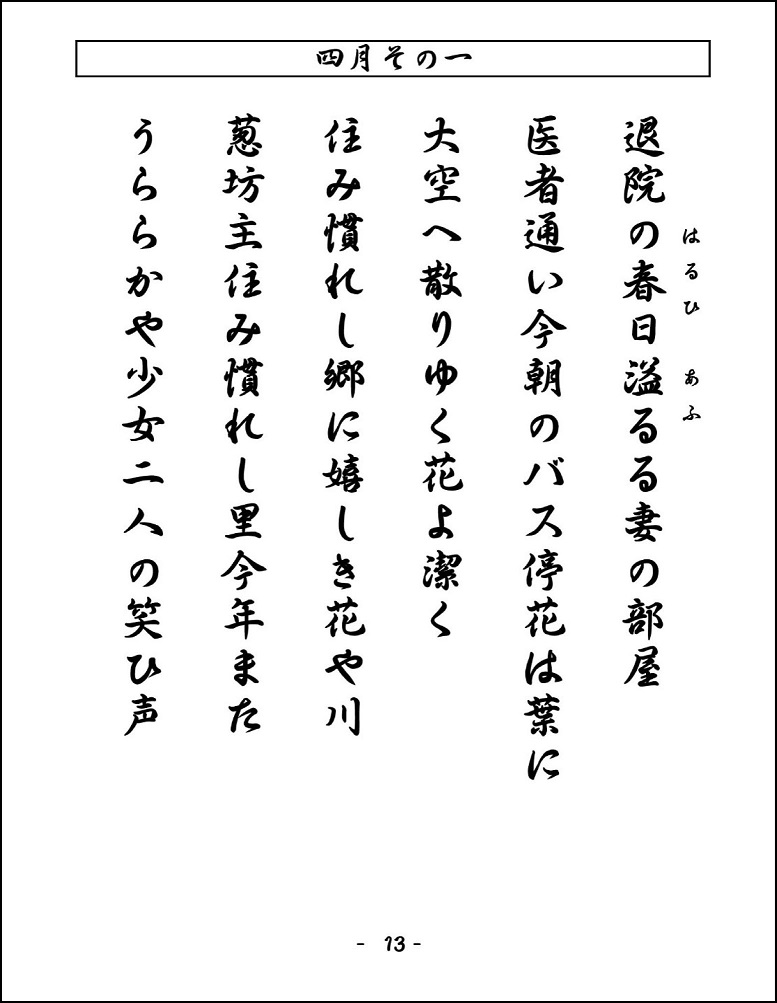 四月その一
退院の春日溢るる妻の部屋
はるひ あふ
医者通い今朝のバス停花は葉に
大空へ散りゆく花よ潔く
住み慣れし郷に嬉しき花や川
葱坊主住み慣れし里今年また
うららかや少女二人の笑ひ声
- 13 -